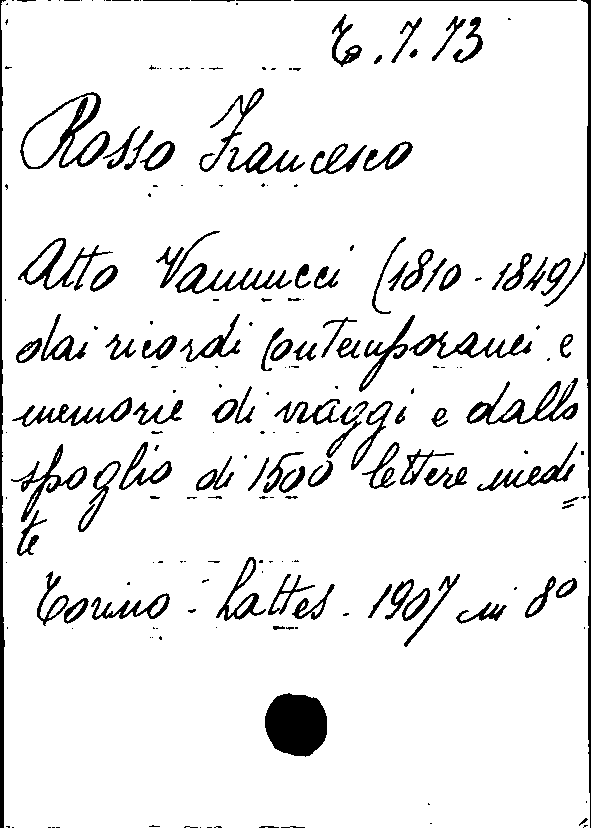 T.7.73
Rosso Francesco
Atto Vannucci (1810-1849)
dai ricordi contemporanei e
memorie di viaggi e dallo
spoglio di 1500 lettere inedi=
te
Torino - Lattes - 1907 in 8º